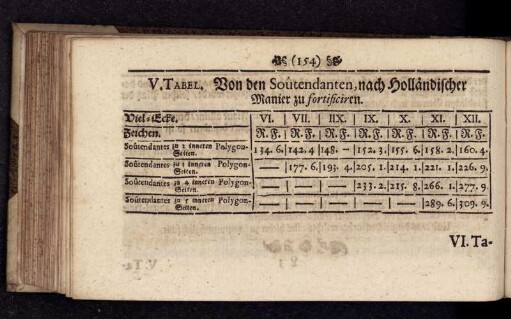 (154)
V. TABEL. Von den Soûtendanten, nach Holländischer
Manier zu fortificiren.
Viel-Ecke. VI. VII. IIX. IX. X. XI. XII.
Zeichen. R. F. R. F. R. F. R. F. R. F. R. F. R. F.
Soûtendantes zu 2 inneren Polygon-Seiten. 134. 6. 142. 4 148. – 152. 3. 155. 6. 158. 2. 160. 4.
Soûtendantes zu 3 inneren Polygon-Seiten. — 177. 6. 193. 4. 205. 1. 214. 1. 221. 1. 226. 9.
Soûtendantes zu 4 inneren Polygon-Seiten. — — — 233. 2. 215. 8. 266. 1. 277. 9.
Soûtendantes zu 5 inneren Polygon-Seiten. — — — — — 289. 6. 309. 9.
VI. Ta-